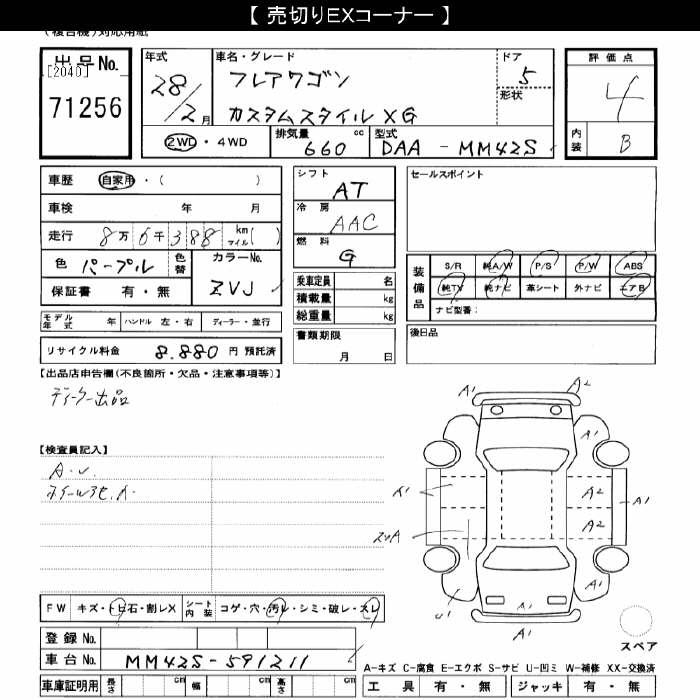 【 売切りEXコーナー 】
(複合機)対応用紙
出品No.
[2040]
71256
年式
28/2月
車名・グレード
フレアワゴン
カスタムスタイルXG
ドア
5
形状
評価点
4
内装
B
2WD・4WD
排気量 cc
660
型式
DAA - MM42S
車歴 自家用・( )
車検 年 月
走行 8万6千388 km マイル( )
色 パープル
色替
カラーNo.
ZVJ
保証書 有・無
モデル年式 年 ハンドル 左・右 ディーラー・並行
リサイクル料金 8.880 円 預託済
シフト
AT
冷房
AAC
燃料
G
乗車定員 名
積載量 kg
総重量 kg
書類期限
月 日
セールスポイント
装備品
S/R 純A/W P/S P/W ABS
純TV 純ナビ 革シート 外ナビ エアB
ナビ型番:
後日品
【出品店申告欄(不良箇所・欠品・注意事項等)】
ディーラー出品
【検査員記入】
A・U
A1 A2
A1
A1 A2 A1
A2
A1
U1 A1
A1
スペア
FW キズ・トビ石・割レX
シート内装 コゲ・穴・汚レ・シミ・破レ・スレ
登録No.
車台No. MM42S-591211
A-キズ C-腐食 E-エクボ S-サビ U-凹ミ W-補修 XX-交換済
車庫証明用 長さ cm 幅 cm 高さ cm
工具 有・無 ジャッキ 有・無